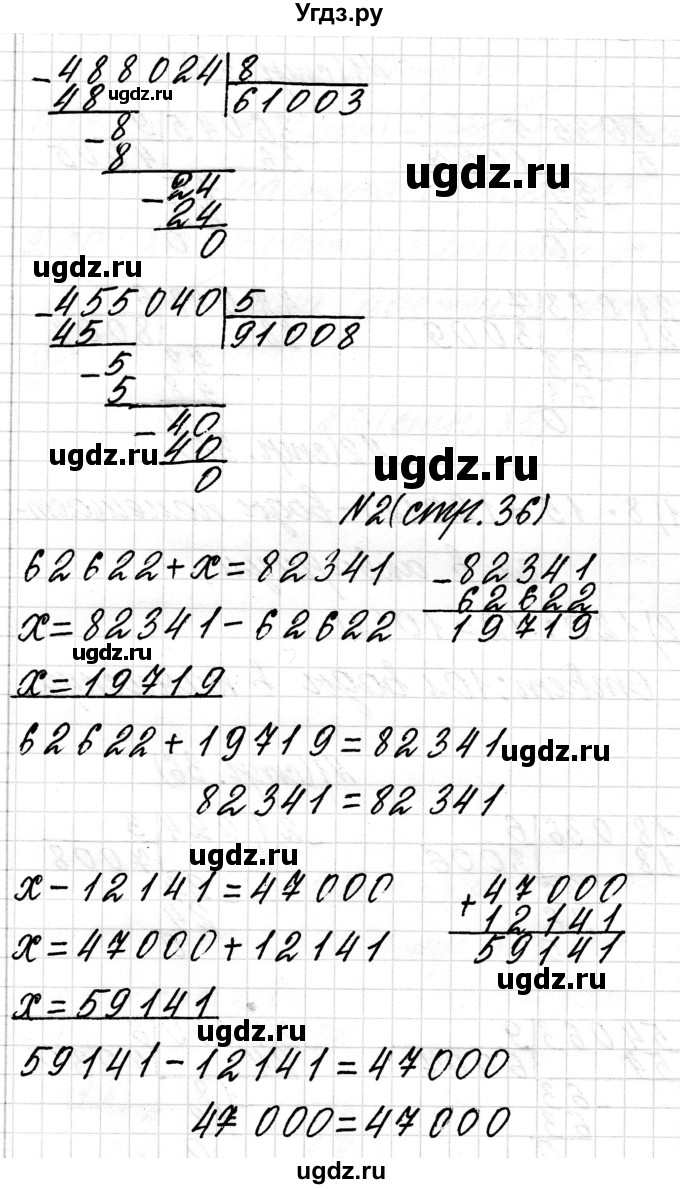 Угдз.ру
- 488024 | 8
48 ugdz.ru 61003
- 8
8
ugdz.ru
- 24
24
0
ugdz.ru
- 455040 | 5
45 91008
- 5
5
- 40
ugdz.ru 40
ugdz.ru
0
N2(стр. 36)
62622 + x = 82341 - 82341
62622
x = 82341 - 62622 19719
ugdz.ru
x = 19719
62622 + 19719 = 82341 ugdz.ru
82341 = 82341
ugdz.ru
x - 12141 = 47000 + 47000
12141
x = 47000 + 12141 59141
ugdz.ru
x = 59141
ugdz.ru
59141 - 12141 = 47000
47000 = 47000
ugdz.ru